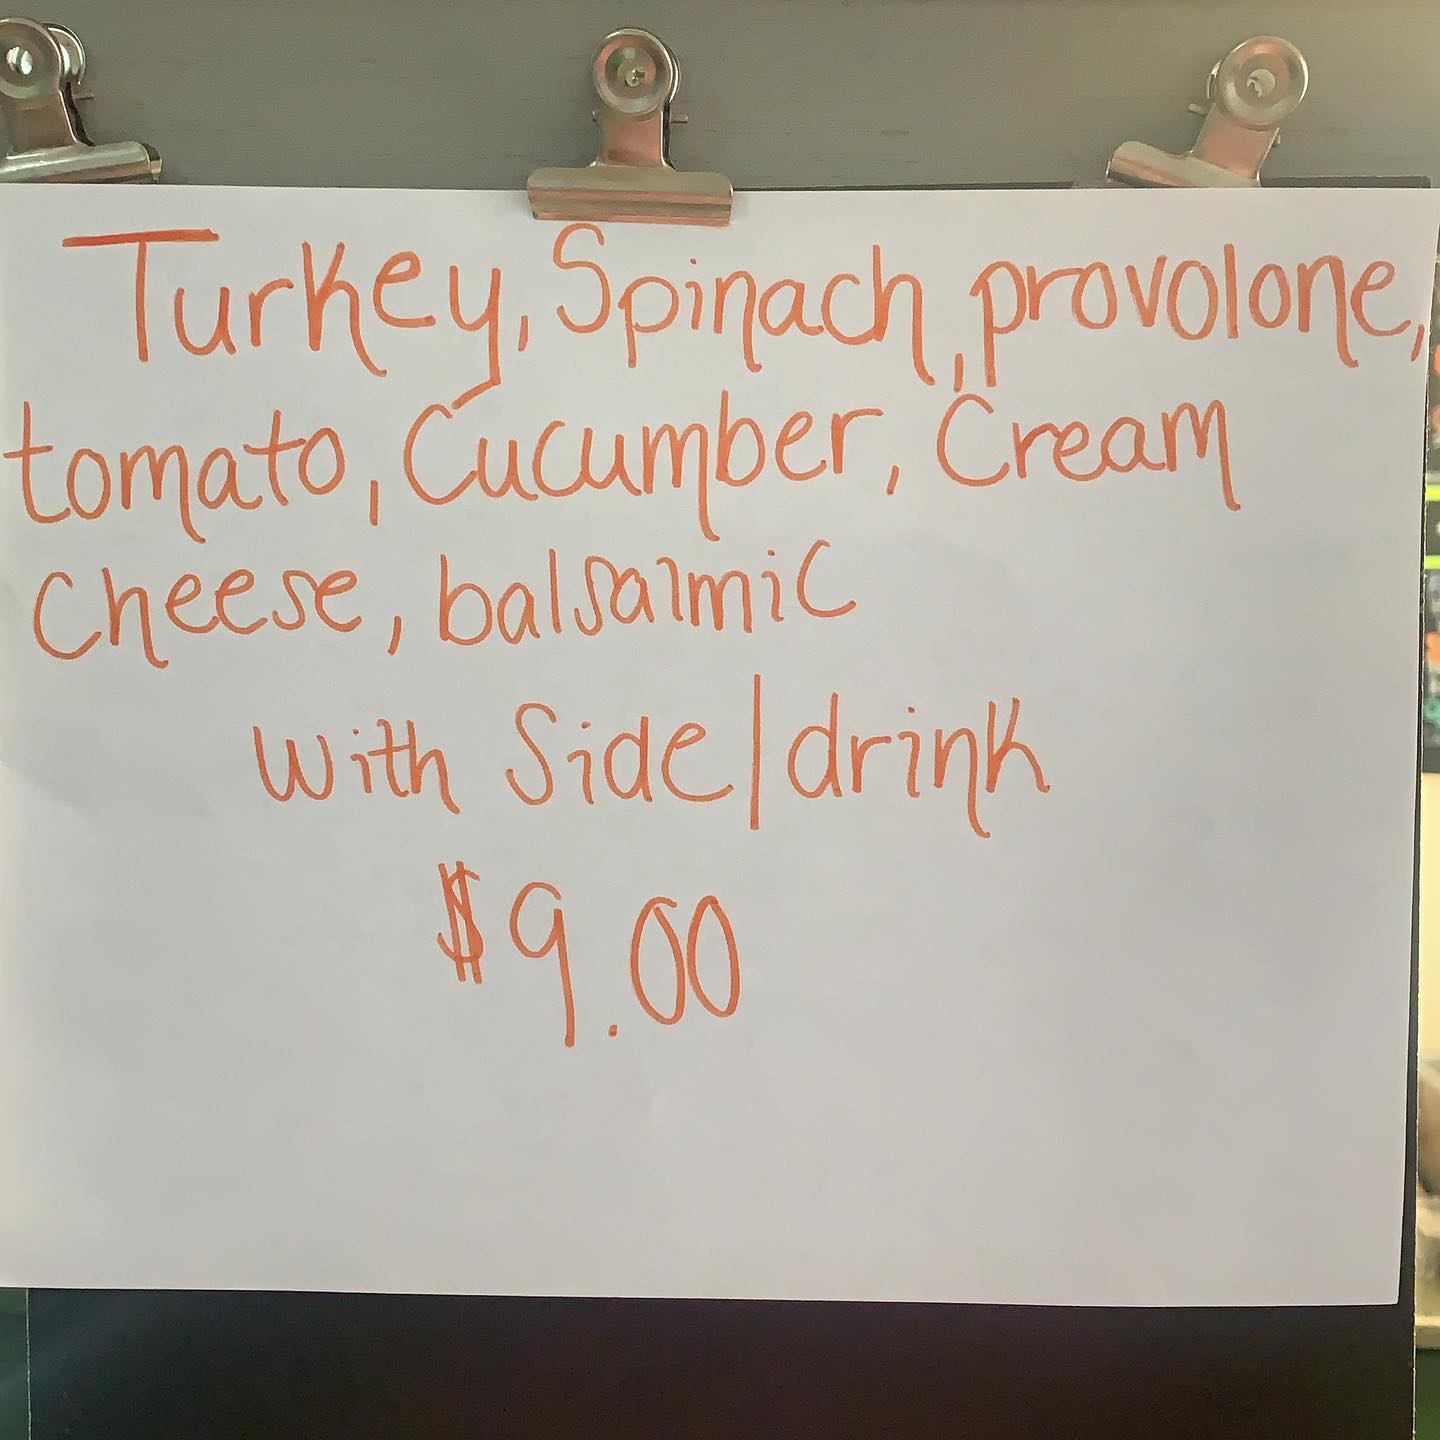 Turkey, Spinach, provolone,
tomato, Cucumber, Cream
Cheese, balsalmic
with Side/drink
$9.00